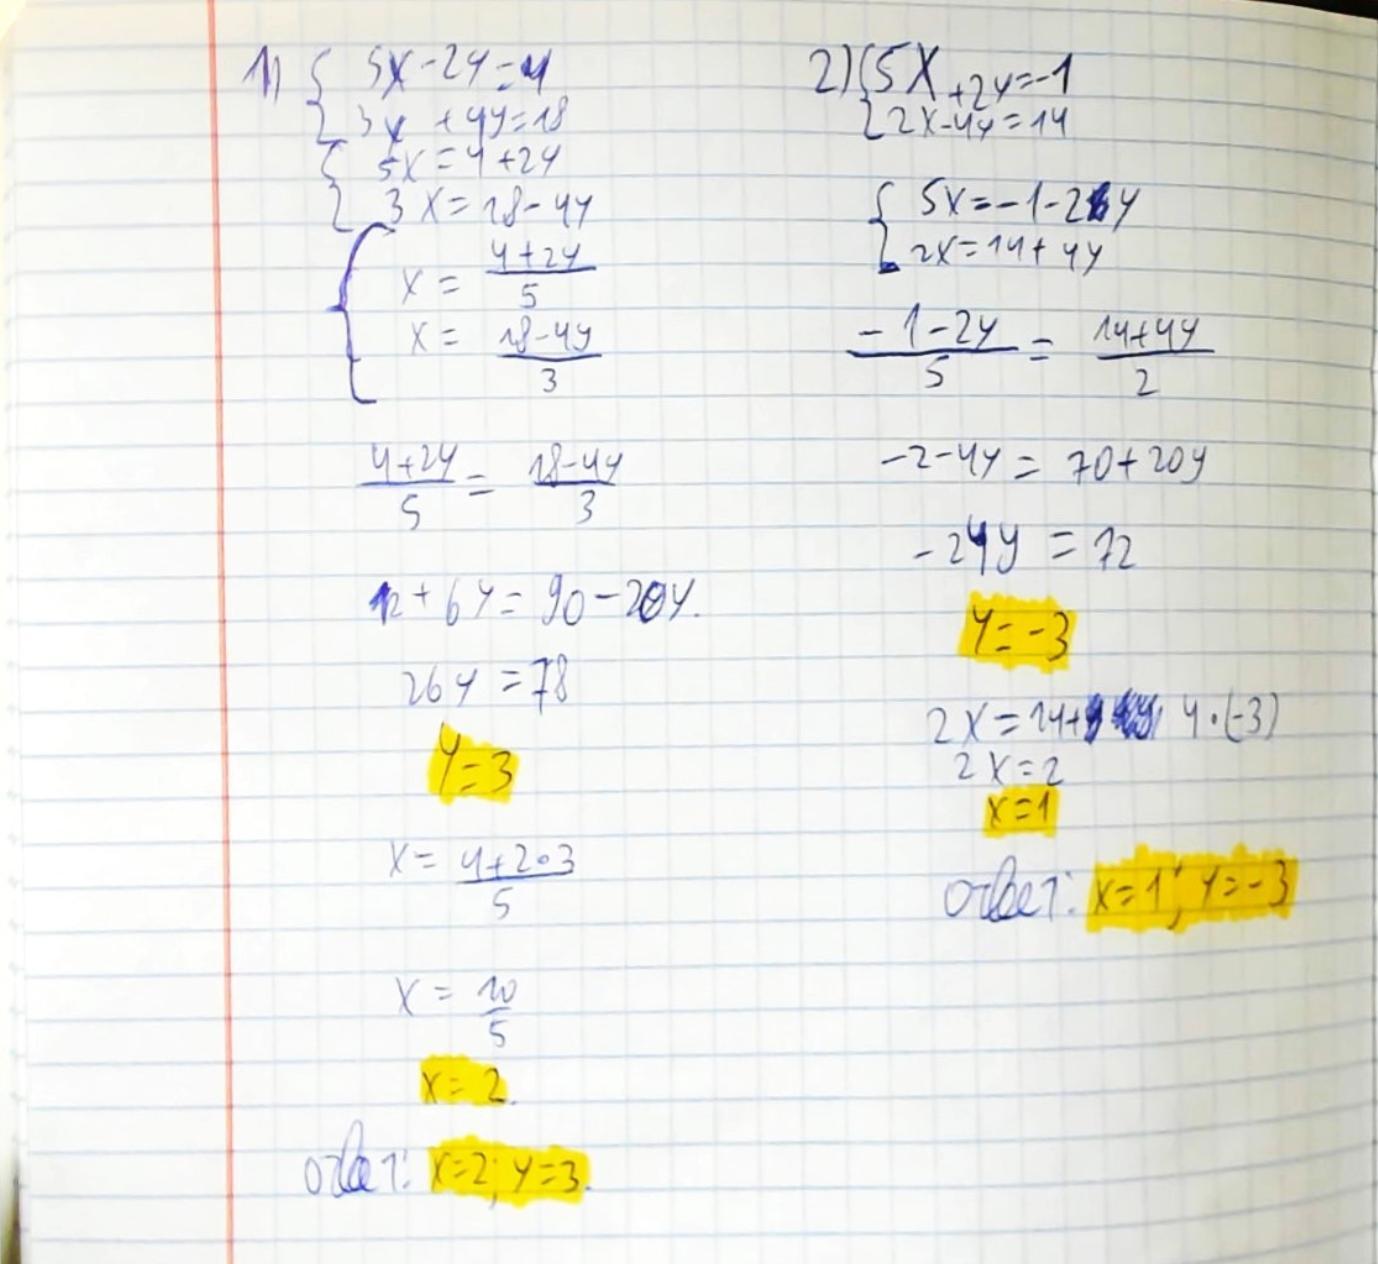 1) { 5x-2y=4
3x+4y=18
{ 5x=4+2y
3x=18-4y
{ x = (4+2y)/5
x = (18-4y)/3
(4+2y)/5 = (18-4y)/3
12+6y=90-20y.
26y=78
y=3
x = (4+2·3)/5
x = 10/5
x=2.
ответ: x=2; y=3.
2) { 5x+2y=-1
2x-4y=14
{ 5x=-1-2y
2x=14+4y
(-1-2y)/5 = (14+4y)/2
-2-4y=70+20y
-24y=72
y=-3
2x=14+4·(-3)
2x=2
x=1
ответ: x=1; y=-3